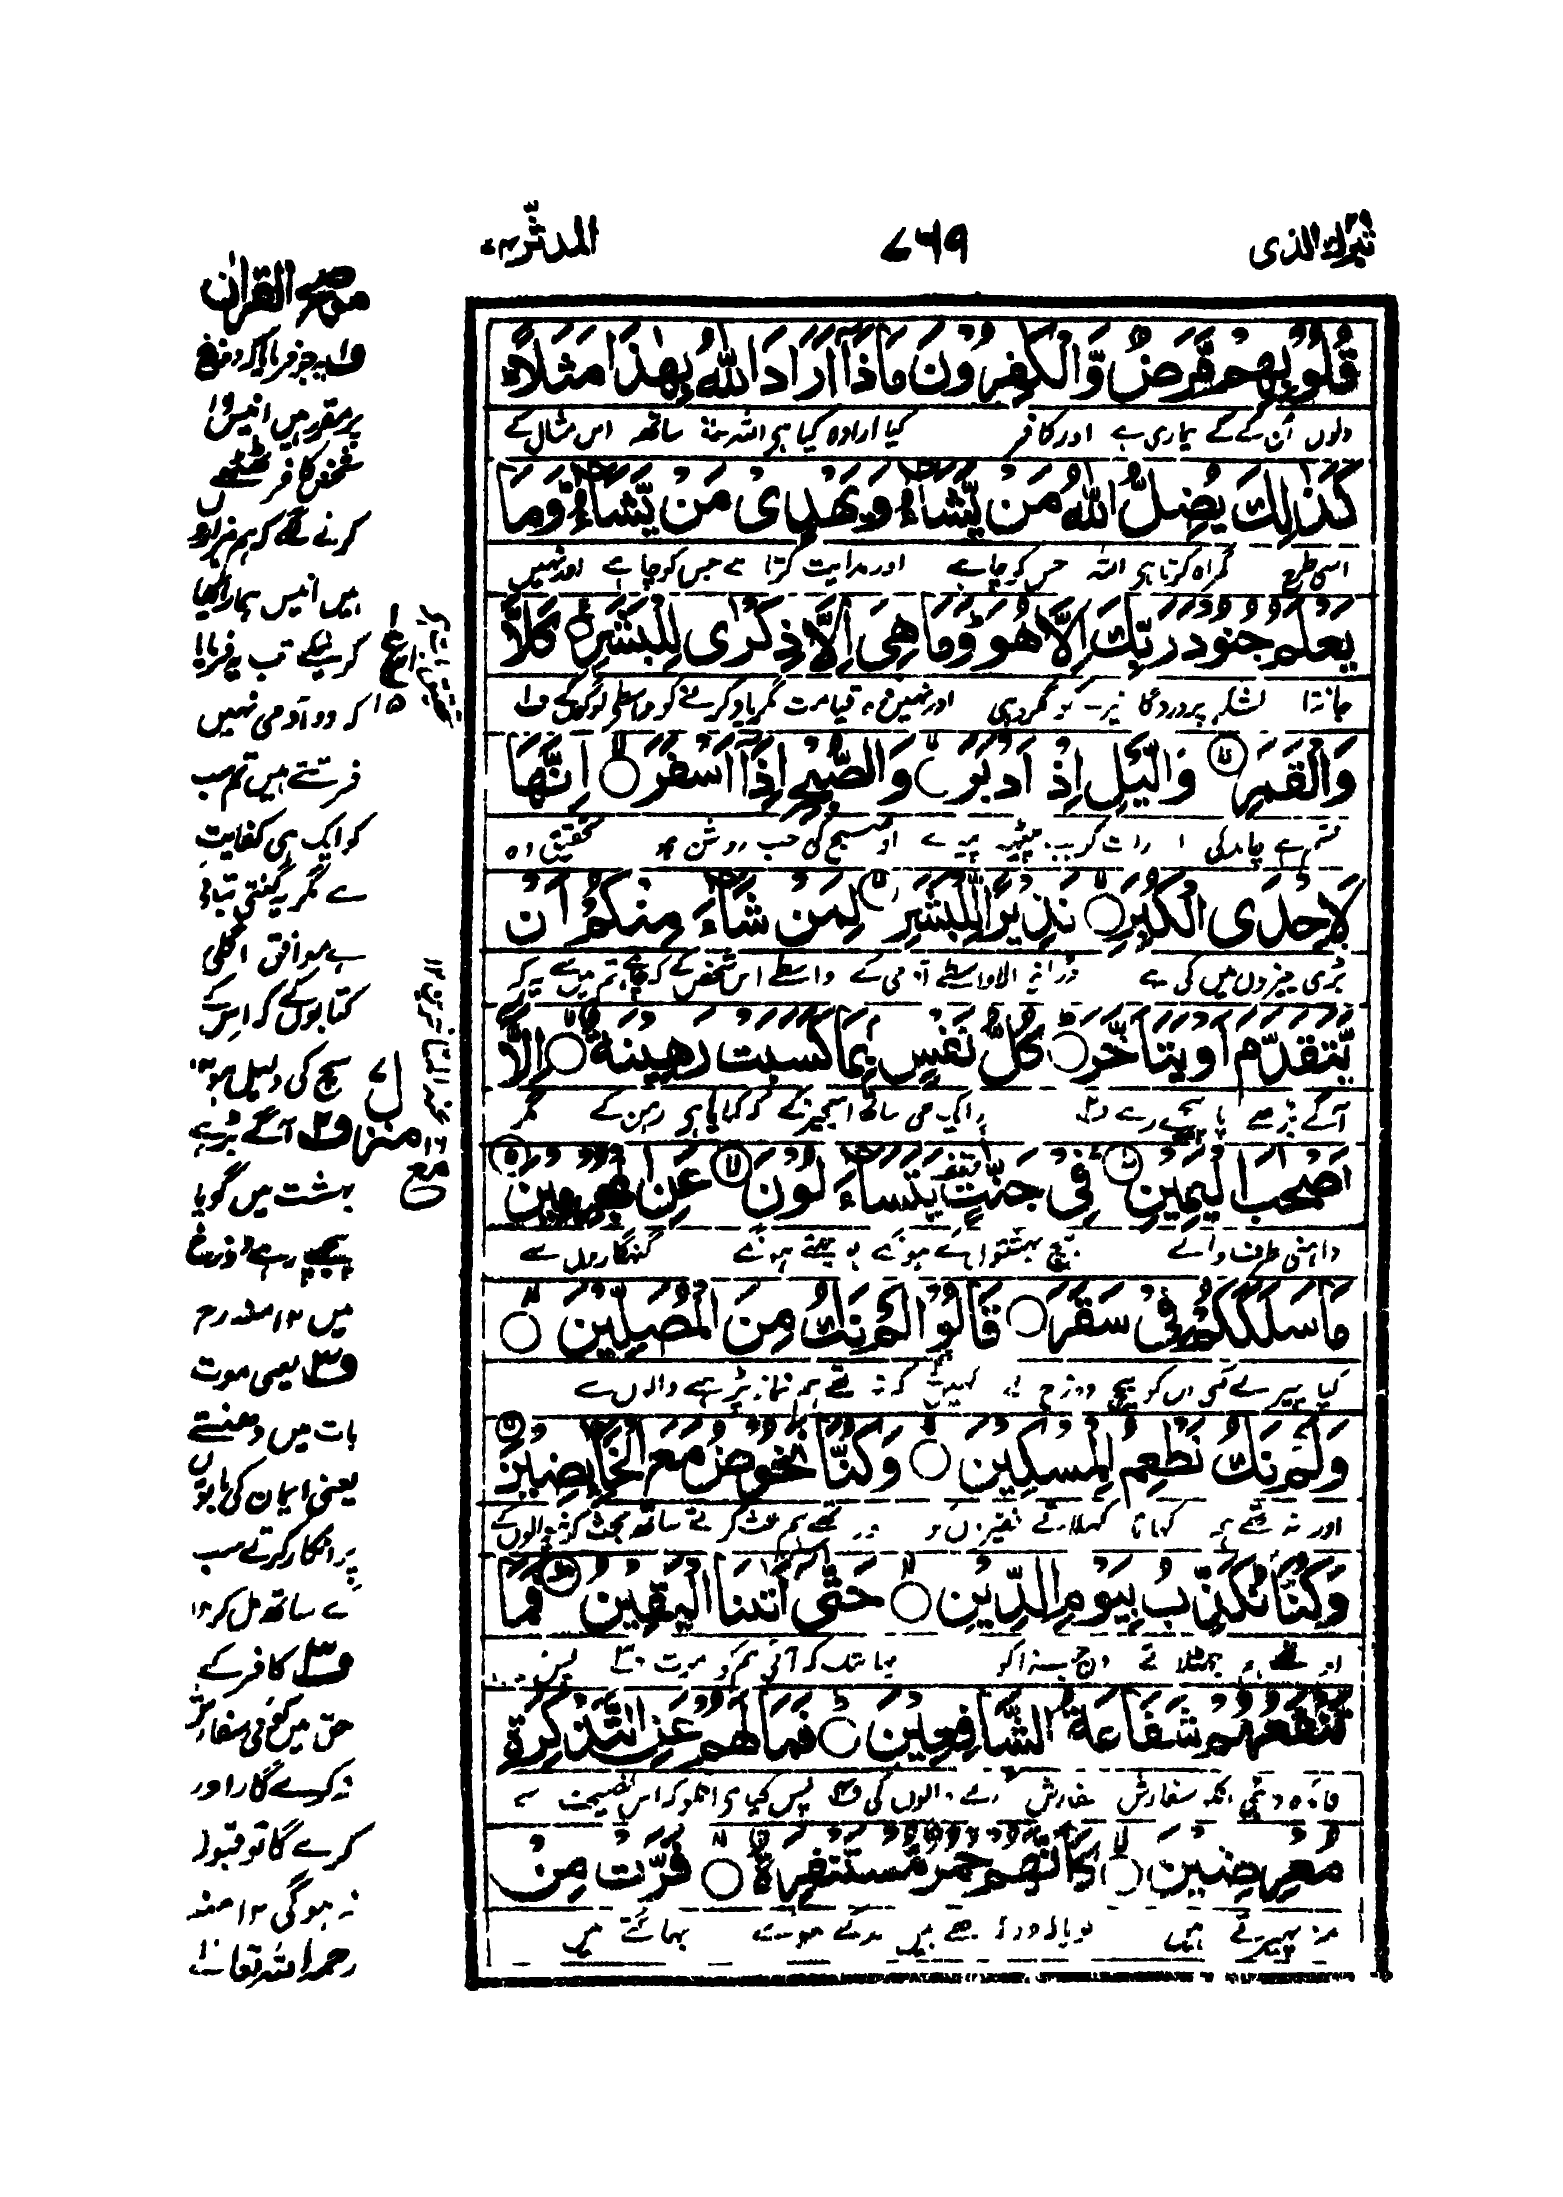 تبرك الذى ٢٩
٧٦٩
المدثر ٧٤
قُلُوْبِهِمْ مَّرَضٌ وَّالْكٰفِرُوْنَ مَاذَآ اَرَادَ اللّٰهُ بِهٰذَا مَثَلًا
دلوں اُن کے کے بیماری ہے اور کافر کیا ارادہ کیا ہی اللہ نے ساتھ اس مثال کے
كَذٰلِكَ يُضِلُّ اللّٰهُ مَنْ يَّشَآءُ وَيَهْدِىْ مَنْ يَّشَآءُ وَمَا
اسی طرح گمراہ کرتا ہی اللہ جس کو چاہے اور ہدایت کرتا ہے جس کو چاہے اور نہیں
يَعْلَمُ جُنُوْدَ رَبِّكَ اِلَّا هُوَ وَمَا هِىَ اِلَّا ذِكْرٰى لِلْبَشَرِ كَلَّا
جانتا لشکر پروردگار تیرے کو مگر وہی اور نہیں قیامت مگر یاد کرنے کو واسطے لوگوں کے ف۱
وَالْقَمَرِ وَالَّيْلِ اِذْ اَدْبَرَ وَالصُّبْحِ اِذَآ اَسْفَرَ اِنَّهَا
قسم ہے چاند کی رات کو جب پیٹھ پھیرے اور صبح کی جب روشن ہو تحقیق وہ
لَاِحْدَى الْكُبَرِ نَذِيْرًا لِّلْبَشَرِ لِمَنْ شَآءَ مِنْكُمْ اَنْ
بڑی چیزوں میں کی ہے ڈرانے والا واسطے آدمی کے واسطے اس شخص کے کہ چاہے تم میں سے یہ کہ
يَّتَقَدَّمَ اَوْ يَتَاَخَّرَ كُلُّ نَفْسٍۭ بِمَا كَسَبَتْ رَهِيْنَةٌ اِلَّآ
آگے بڑھے یا پیچھے رہے ف۲ ہر ایک جی ساتھ اس چیز کے کہ کمایا ہی رہن ہے مگر
اَصْحٰبَ الْيَمِيْنِ فِىْ جَنّٰتٍ يَّتَسَآءَلُوْنَ عَنِ الْمُجْرِمِيْنَ
داہنی طرف والے بیچ بہشتوں کے ہونگے پوچھتے ہونگے گنہگاروں سے
مَا سَلَكَكُمْ فِىْ سَقَرَ قَالُوْا لَمْ نَكُ مِنَ الْمُصَلِّيْنَ
کیا چیز لے گئی اس کو بیچ دوزخ کے کہیں گے کہ نہ تھے ہم نماز پڑھنے والوں سے
وَلَمْ نَكُ نُطْعِمُ الْمِسْكِيْنَ وَكُنَّا نَخُوْضُ مَعَ الْخَآئِضِيْنَ
اور نہ تھے ہم کھانا کھلاتے فقیروں کو اور تھے ہم بحث کرتے ساتھ بحث کرنے والوں کے
وَكُنَّا نُكَذِّبُ بِيَوْمِ الدِّيْنِ حَتّٰٓى اَتٰىنَا الْيَقِيْنُ فَمَا
اور تھے ہم جھٹلاتے یہاں تک کہ آئی ہم کو موت ف۳ پس
تَنْفَعُهُمْ شَفَاعَةُ الشَّافِعِيْنَ فَمَا لَهُمْ عَنِ التَّذْكِرَةِ
فائدہ دیگی انکو سفارش سفارش کرنے والوں کی ف۴ پس کیا ہی انکو کہ اس نصیحت سے
مُعْرِضِيْنَ كَاَنَّهُمْ حُمُرٌ مُّسْتَنْفِرَةٌ فَرَّتْ مِنْ
منہ پھیرتے ہیں گویا کہ وہ گدھے ہیں بدکے ہوئے بھاگتے ہیں
موضح القرآن
ف۱ یہ جو فرمایا کہ دوزخ
پر مقرر ہیں انیس
شخص کافر ٹھٹھے
کرنے لگے کہ ہم ہزاروں
ہیں انیس ہمارا کیا
کر سکینگے تب یہ فرمایا
کہ وہ آدمی نہیں
فرشتے ہیں تم سب
کو ایک ہی کفایت
ہے مگر یہ گنتی بتائی
ہے موافق اگلی
کتابوں کے کہ اس کے
سچ کی دلیل ہو ۱۲
ف۲ آگے بڑھے
بہشت میں گویا
پیچھے رہے دوزخ
میں ۱۲ منہ رح
ف۳ یعنی موت
بات میں دھنستے
یعنی ایمان کی باتوں
پر انکار کرتے سب
کے ساتھ مل کر ۱۲
ف۴ کافر کے
حق میں کوئی سفارش
نہ کرے گا اور
کرے گا تو قبول
نہ ہوگی ۱۲ منہ
رحمہ اللہ تعالیٰ
ع
۱۵
منزل
مع